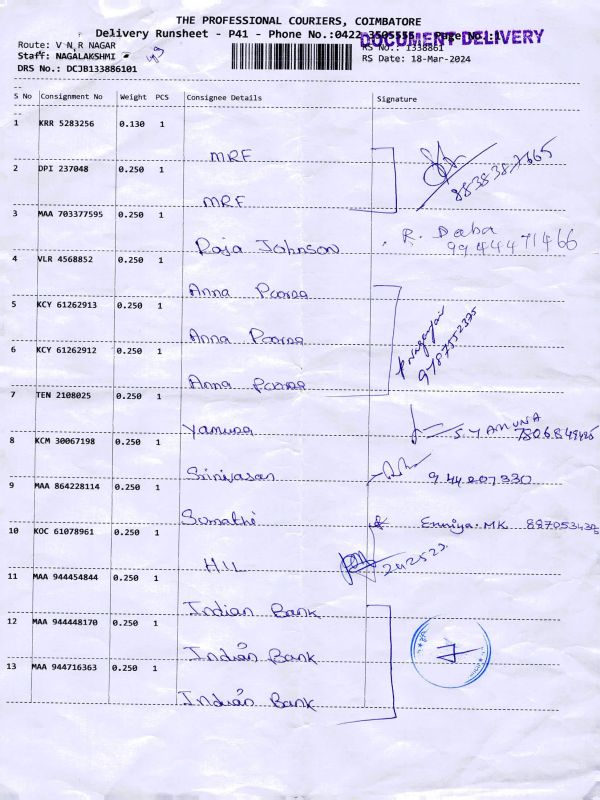 THE PROFESSIONAL COURIERS, COIMBATORE
Delivery Runsheet - P41 - Phone No.:0422-3505555 Page No.:1
DOCUMENT DELIVERY
Route: V N R NAGAR
RS No.: 1338861
Staff: NAGALAKSHMI
RS Date: 18-Mar-2024
DRS No.: DCJB133886101
S No Consignment No Weight PCS Consignee Details Signature
1 KRR 5283256 0.130 1 MRF
2 DPI 237048 0.250 1 MRF
3 MAA 703377595 0.250 1 Raja Johnson R. Deeba 9944471466
4 VLR 4568852 0.250 1 Anna Poorna
5 KCY 61262913 0.250 1 Anna Poorna
6 KCY 61262912 0.250 1 Anna Poorna
7 TEN 2108025 0.250 1 Yamuna S. YAMUNA
8 KCM 30067198 0.250 1 Srinivasan
9 MAA 864228114 0.250 1 Sumathi
10 KOC 61078961 0.250 1 HIL
11 MAA 944454844 0.250 1 Indian Bank
12 MAA 944448170 0.250 1 Indian Bank
13 MAA 944716363 0.250 1 Indian Bank